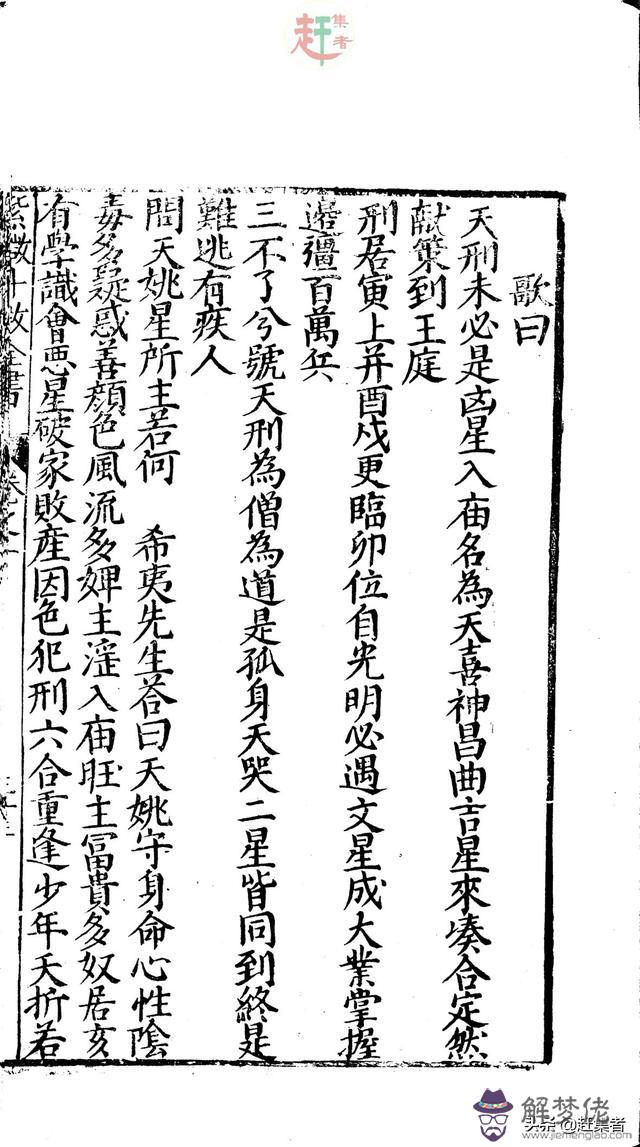 赶集者
歌曰
天刑未必是凶星入庙名為天喜神昌曲吉星來凑合定然
献策到王庭
刑居寅上并酉戍更臨卯位自光明必遇文星成大業掌握
邊疆百萬兵
三不了兮號天刑為僧為道是孤身天哭二星皆同到終是
難逃有疾人
問天姚星所主若何 希夷先生荅曰天姚守身命心性陰
毒多疑惑善顔色風流多婢主滛入庙旺主冨貴多奴居亥
有學識會惡星破家敗產因色犯刑六合重逢少年夭折若
紫微斗数全書 卷之一
解梦佬
www.jiemenglao.com
头条@赶集者